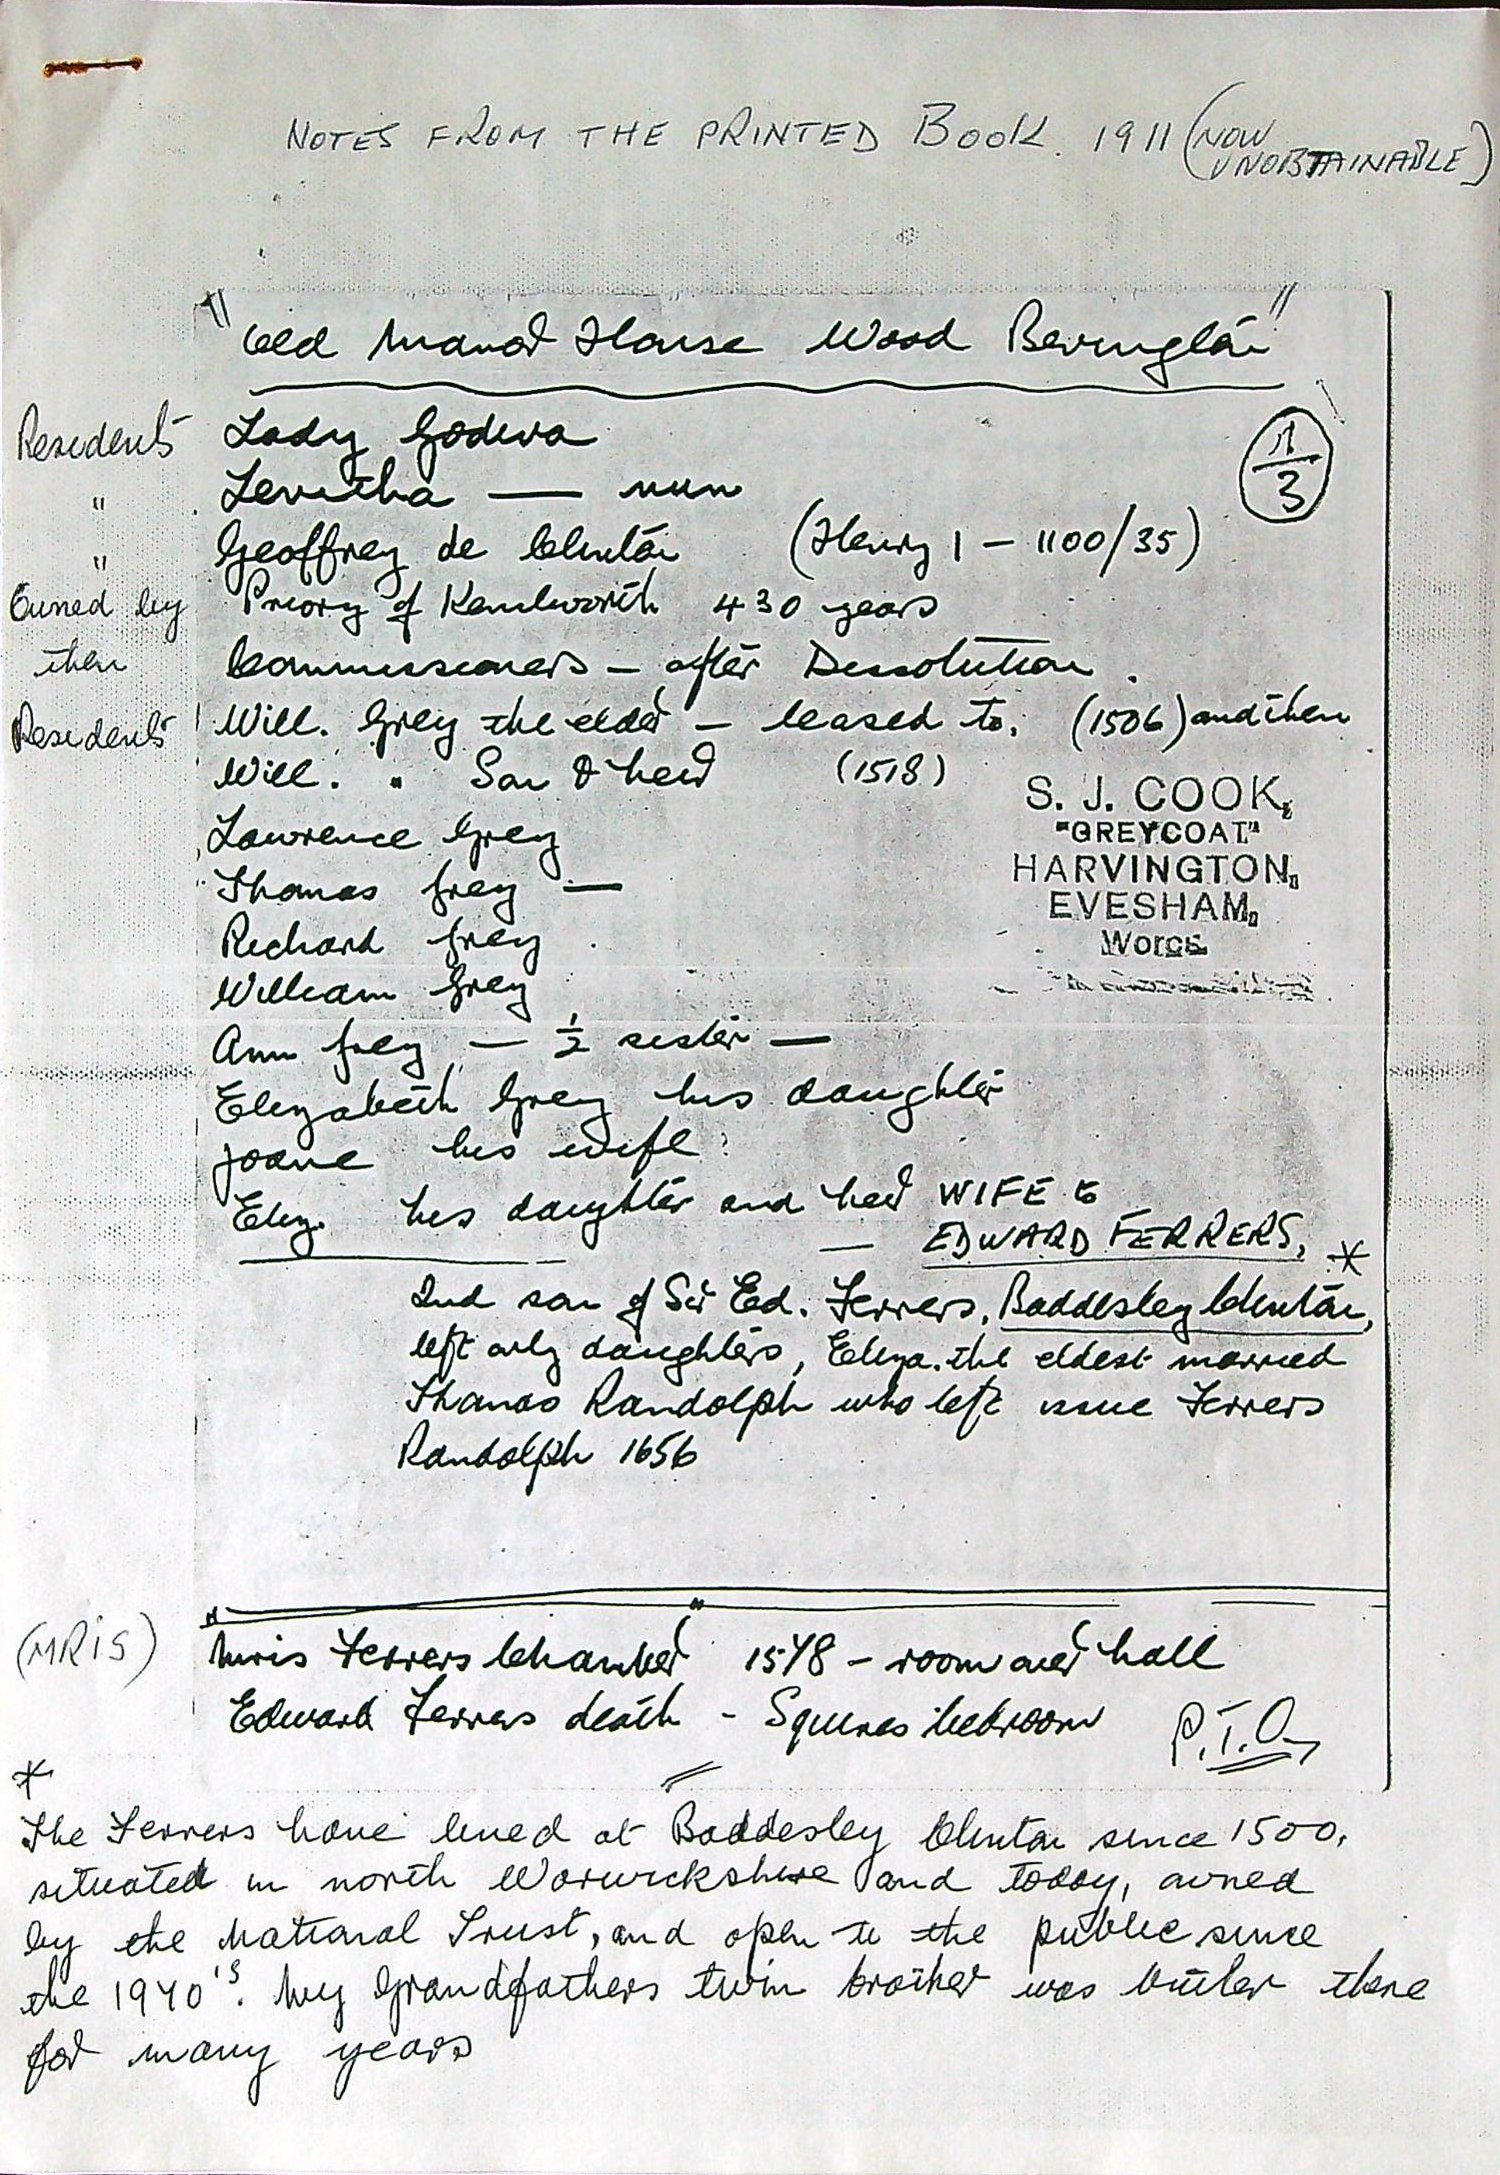 NOTES FROM THE PRINTED BOOK. 1911 (NOW
UNOBTAINABLE)
"Old Manor House Wood Bevington"
1/3
Residents Lady Godiva
" Levitha — nun
" Geoffrey de Clinton (Henry I - 1100/35)
Owned by Priory of Kenilworth 430 years
then Commissioners - after Dissolution.
Residents Will. Grey the elder - leased to. (1506) and then
Will. " Son & heir (1518)
Lawrence Grey
Thomas Grey —
Richard Grey
William Grey
Ann Grey — ½ sister —
Elizabeth Grey his daughter
Joane his wife
Eliz. his daughter and heir WIFE to
— EDWARD FERRERS, *
2nd son of Sir Ed. Ferrers, Baddesley Clinton,
left only daughters, Eliza. the eldest married
Thomas Randolph who left issue Ferrers
Randolph 1656
S. J. COOK,
"GREYCOAT"
HARVINGTON,
EVESHAM,
Worcs.
(MRIS) "Mris Ferrers Chamber" 1578 - room over hall
Edward Ferrers death - Squires bedroom P.T.O.
*
The Ferrers have lived at Baddesley Clinton since 1500,
situated in north Warwickshire and today, owned
by the National Trust, and open to the public since
the 1940's. My Grandfathers twin brother was butler there
for many years